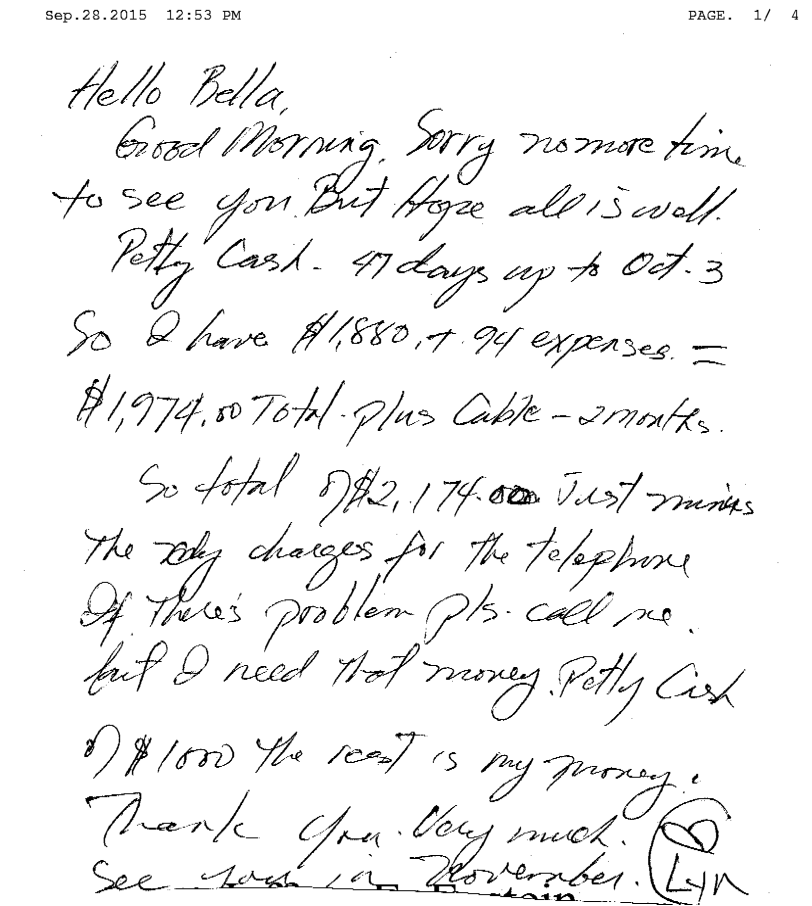 Sep.28.2015 12:53 PM PAGE. 1/ 4
Hello Bella,
Good Morning. Sorry no more time
to see you. But Hope all is well.
Petty Cash - 47 days up to Oct. 3
So I have $1,880.+ 94 expenses. =
$1,974.00 Total - plus Cable - 2 months.
So total of $2,174.00 Just minus
the charges for the telephone
If there's problem pls. call me.
but I need that money. Petty Cash
of $1000 the rest is my money.
Thank you. Very much.
See you in November. Lyn